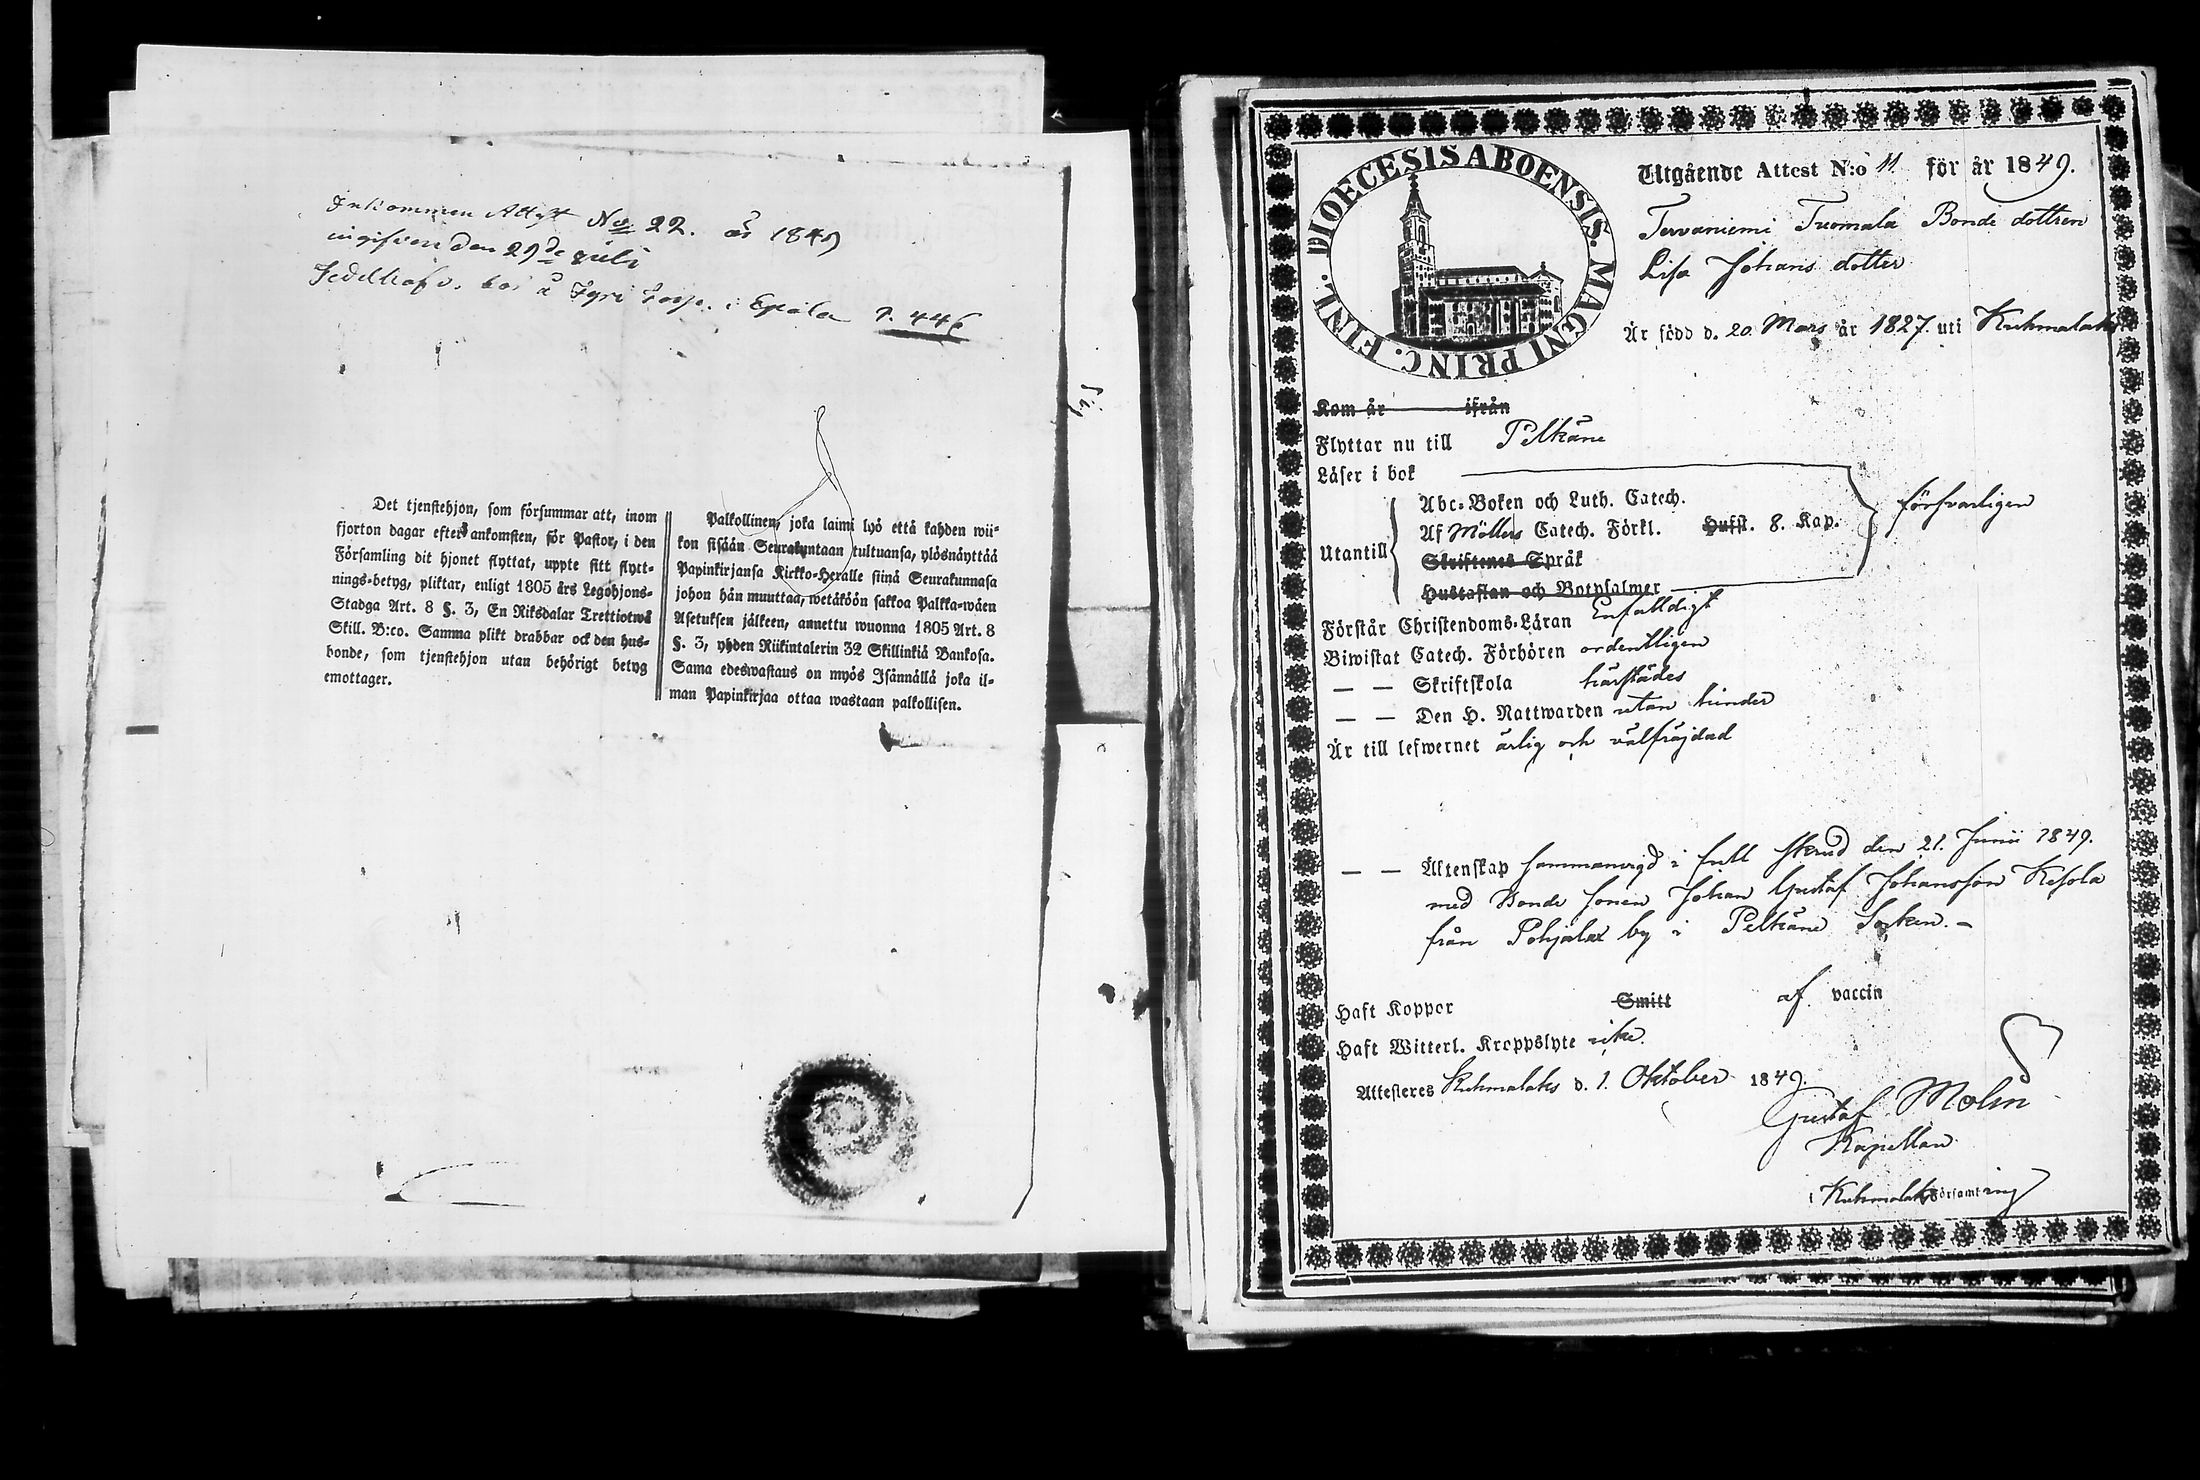 Inkommen Attest No 22. år 1849
ingifven den 29de juli
i Epåla P. 446
Det tjenstehjon, som försummar att, inom
fjorton dagar efter ankomsten, för Pastor, i den
Församling dit hjonet flyttat, uppte sitt flytt-
nings-betyg, pliktar, enligt 1805 års Legohjons-
Stadga Art. 8 §. 3, En Riksdalar Trettiotwå
Skill. B:co. Samma plikt drabbar ock den hus-
bonde, som tjenstehjon utan behörigt betyg
emottager.
Palkollinen, joka laimi lyö että kahden wii-
kon sisään Seurakuntaan tultuansa, ylösnäyttää
Papinkirjansa Kirkko-Heralle siinä Seurakunnasa
johon hän muuttaa, wetäköön sakkoa Palkka-wäen
Asetuksen jälkeen, annettu wuonna 1805 Art. 8
§. 3, yhden Riikintalerin 32 Skillinkiä Bankosa.
Sama edeswastaus on myös Isännällä joka il-
man Papinkirjaa ottaa wastaan palkollisen.
DIOECESIS ABOENSIS. MAGNI PRINC. FINL.
Utgående Attest N:o 11 för år 1849.
Tervaniemi Tuomala Bonde dottren
Lisa Johans dotter
Är född d. 20 Mars år 1827. uti Kuhmalaks
Kom år ifrån
Flyttar nu till Pelkäne
Läser i bok
Utantill
Abc-Boken och Luth. Catech.
Af Möllers Catech. Förkl. Hufst. 8. Kap.
Skriftenes Språk
Hustaflan och Botpsalmer
försvarligen
Förstår Christendoms-Läran Enfaldigt
Biwistat Catech. Förhören ordentligen
— — Skriftskola härstädes
— — Den H. Nattwarden utan hinder
Är till lefwernet ärlig och välfräjdad
— — Äktenskap sammanvigd i full skrud den 21. Junii 1849.
med Bonde sonen Johan Gustaf Johansson Kesola
från Pohjalax by i Pelkäne Socken. –
Haft Koppor Smitt af vaccin
Haft Witterl. Kroppslyte icke.
Attesteres Kuhmalaks d. 1. Oktober 1849.
Gustaf Molin
Kapellan
i Kuhmalaks Församling